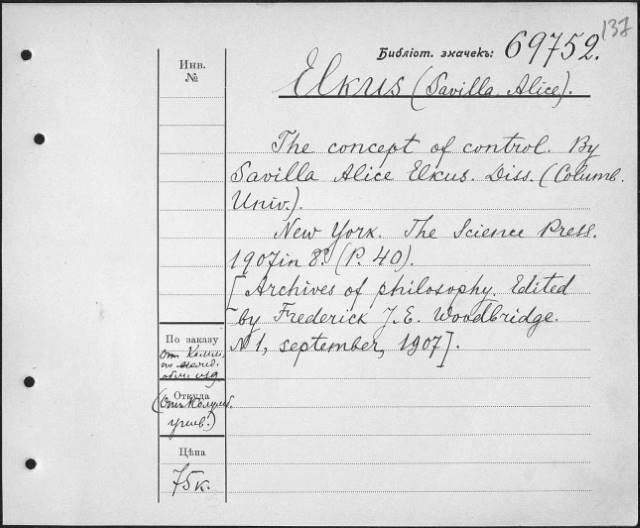 137
Библіот. значекъ: 69752.
Инв.
№
Elkus (Savilla Alice).
The concept of control. By
Savilla Alice Elkus. Diss. (Columb.
Univ.).
New York. The Science Press.
1907 in 8º (P. 40).
[Archives of philosophy. Edited
by Frederick J. E. Woodbridge.
№ 1, september, 1907].
По заказу
От Комм.
по межд.
обм. изд.
Откуда
(От Колумб.
унив.)
Цѣна
75 к.